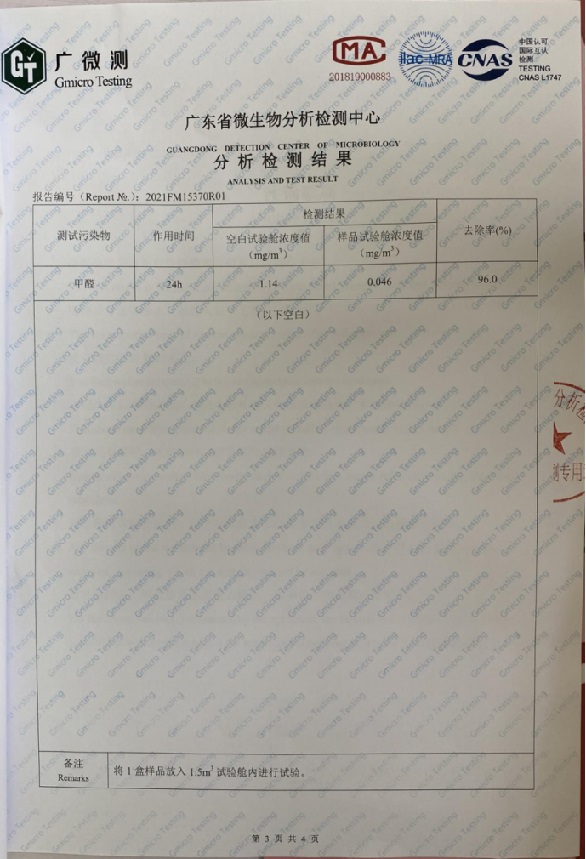 GT
广微测
Gmicro Testing
MA
201819000883
ilac-MRA
CNAS
中国认可
国际互认
检测
TESTING
CNAS L1747
广东省微生物分析检测中心
GUANGDONG DETECTION CENTER OF MICROBIOLOGY
分析检测结果
ANALYSIS AND TEST RESULT
报告编号（Report №.）：2021FM15370R01
测试污染物
作用时间
检测结果
空白试验舱浓度值
（mg/m³）
样品试验舱浓度值
（mg/m³）
去除率(%)
甲醛
24h
1.14
0.046
96.0
（以下空白）
分析检
测专用
备注
Remarks
将 1 盒样品放入 1.5m³ 试验舱内进行试验。
第 3 页 共 4 页